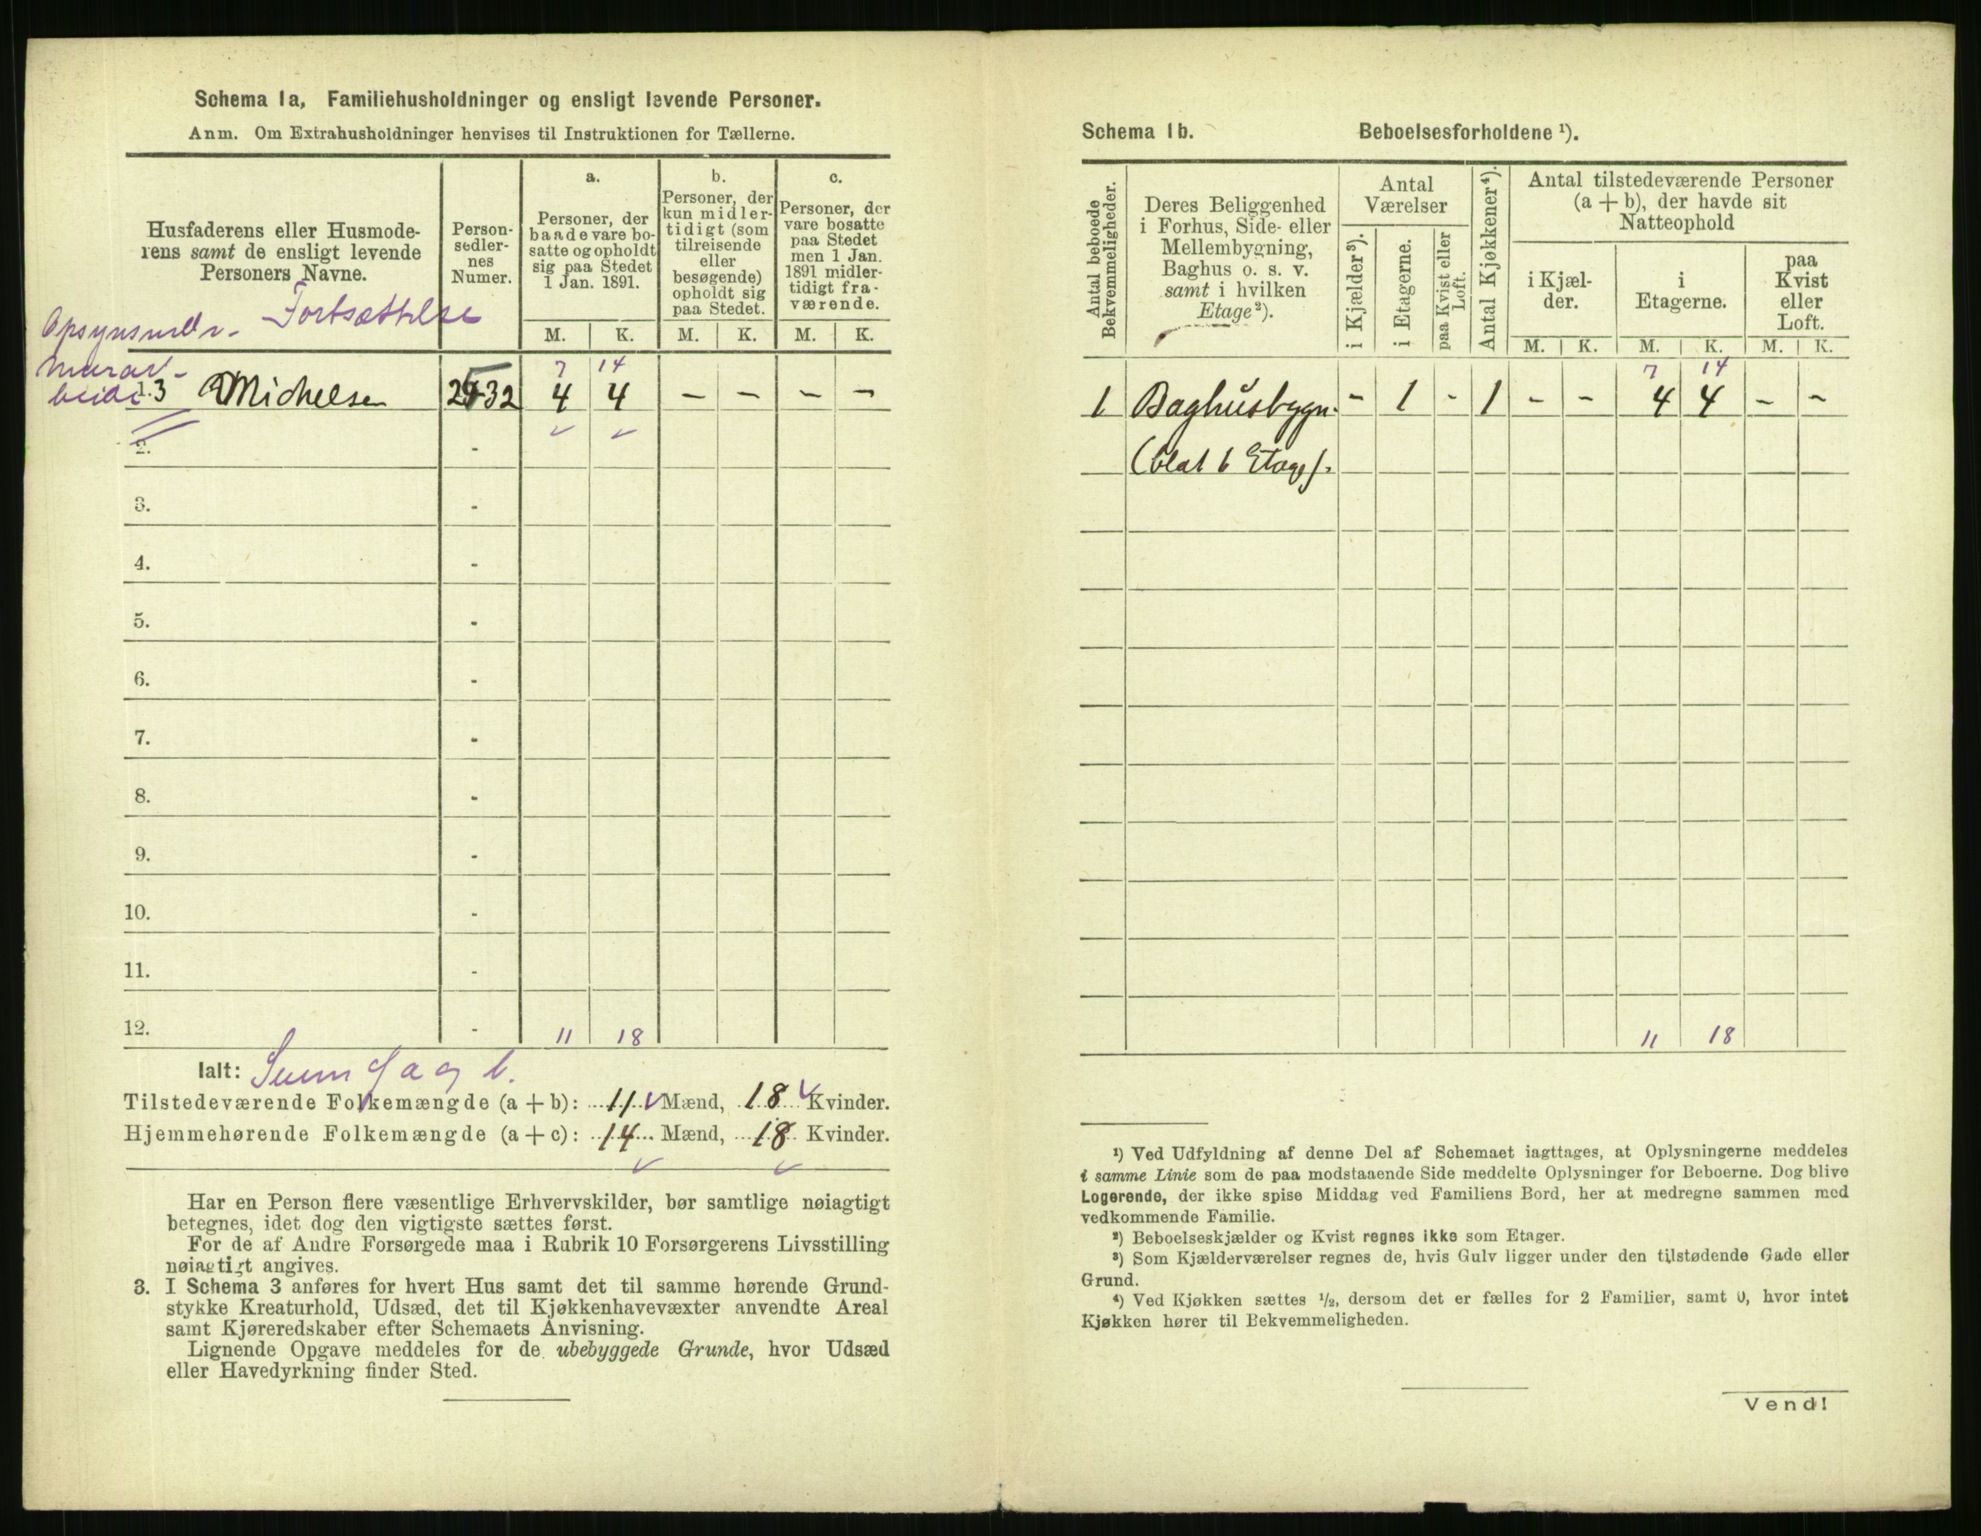 Schema 1a, Familiehusholdninger og ensligt levende Personer.
Anm. Om Extrahusholdninger henvises til Instruktionen for Tællerne.
Husfaderens eller Husmode-
rens samt de ensligt levende
Personers Navne.
Person-
sedler-
nes
Numer.
a.
Personer, der
baade vare bo-
satte og opholdt
sig paa Stedet
1 Jan. 1891.
b.
Personer, der
kun midler-
tidigt (som
tilreisende
eller
besøgende)
opholdt sig
paa Stedet.
c.
Personer, der
vare bosatte
paa Stedet
men 1 Jan.
1891 midler-
tidigt fra-
værende.
M. K. M. K. M. K.
Fortsættelse
7 14
13 Michelsen 25-32 4 4 – – – –
2. -
3. -
4. -
5. -
6. -
7. -
8. -
9. -
10. -
11. -
12. - 11 18
Ialt:
Tilstedeværende Folkemængde (a + b): 11 Mænd, 18 Kvinder.
Hjemmehørende Folkemængde (a + c): 14 Mænd, 18 Kvinder.
Har en Person flere væsentlige Erhvervskilder, bør samtlige nøiagtigt
betegnes, idet dog den vigtigste sættes først.
For de af Andre Forsørgede maa i Rubrik 10 Forsørgerens Livsstilling
nøiagtigt angives.
3. I Schema 3 anføres for hvert Hus samt det til samme hørende Grund-
stykke Kreaturhold, Udsæd, det til Kjøkkenhavevæxter anvendte Areal
samt Kjøreredskaber efter Schemaets Anvisning.
Lignende Opgave meddeles for de ubebyggede Grunde, hvor Udsæd
eller Havedyrkning finder Sted.
Schema 1b. Beboelsesforholdene ¹).
Antal beboede
Bekvemmeligheder.
Deres Beliggenhed
i Forhus, Side- eller
Mellembygning,
Baghus o. s. v.
samt i hvilken
Etage ²).
Antal
Værelser
i Kjælder ³).
i Etagerne.
paa Kvist eller
Loft.
Antal Kjøkkener ⁴).
Antal tilstedeværende Personer
(a + b), der havde sit
Natteophold
i Kjæl-
der.
i
Etagerne.
paa
Kvist
eller
Loft.
M. K. M. K. M. K.
7 14
1 Baghusbygn. – 1 - 1 – – 4 4 – –
11 18
¹) Ved Udfyldning af denne Del af Schemaet iagttages, at Oplysningerne meddeles
i samme Linie som de paa modstaaende Side meddelte Oplysninger for Beboerne. Dog blive
Logerende, der ikke spise Middag ved Familiens Bord, her at medregne sammen med
vedkommende Familie.
²) Beboelseskjælder og Kvist regnes ikke som Etager.
³) Som Kjælderværelser regnes de, hvis Gulv ligger under den tilstødende Gade eller
Grund.
⁴) Ved Kjøkken sættes ½, dersom det er fælles for 2 Familier, samt 0, hvor intet
Kjøkken hører til Bekvemmeligheden.
Vend!